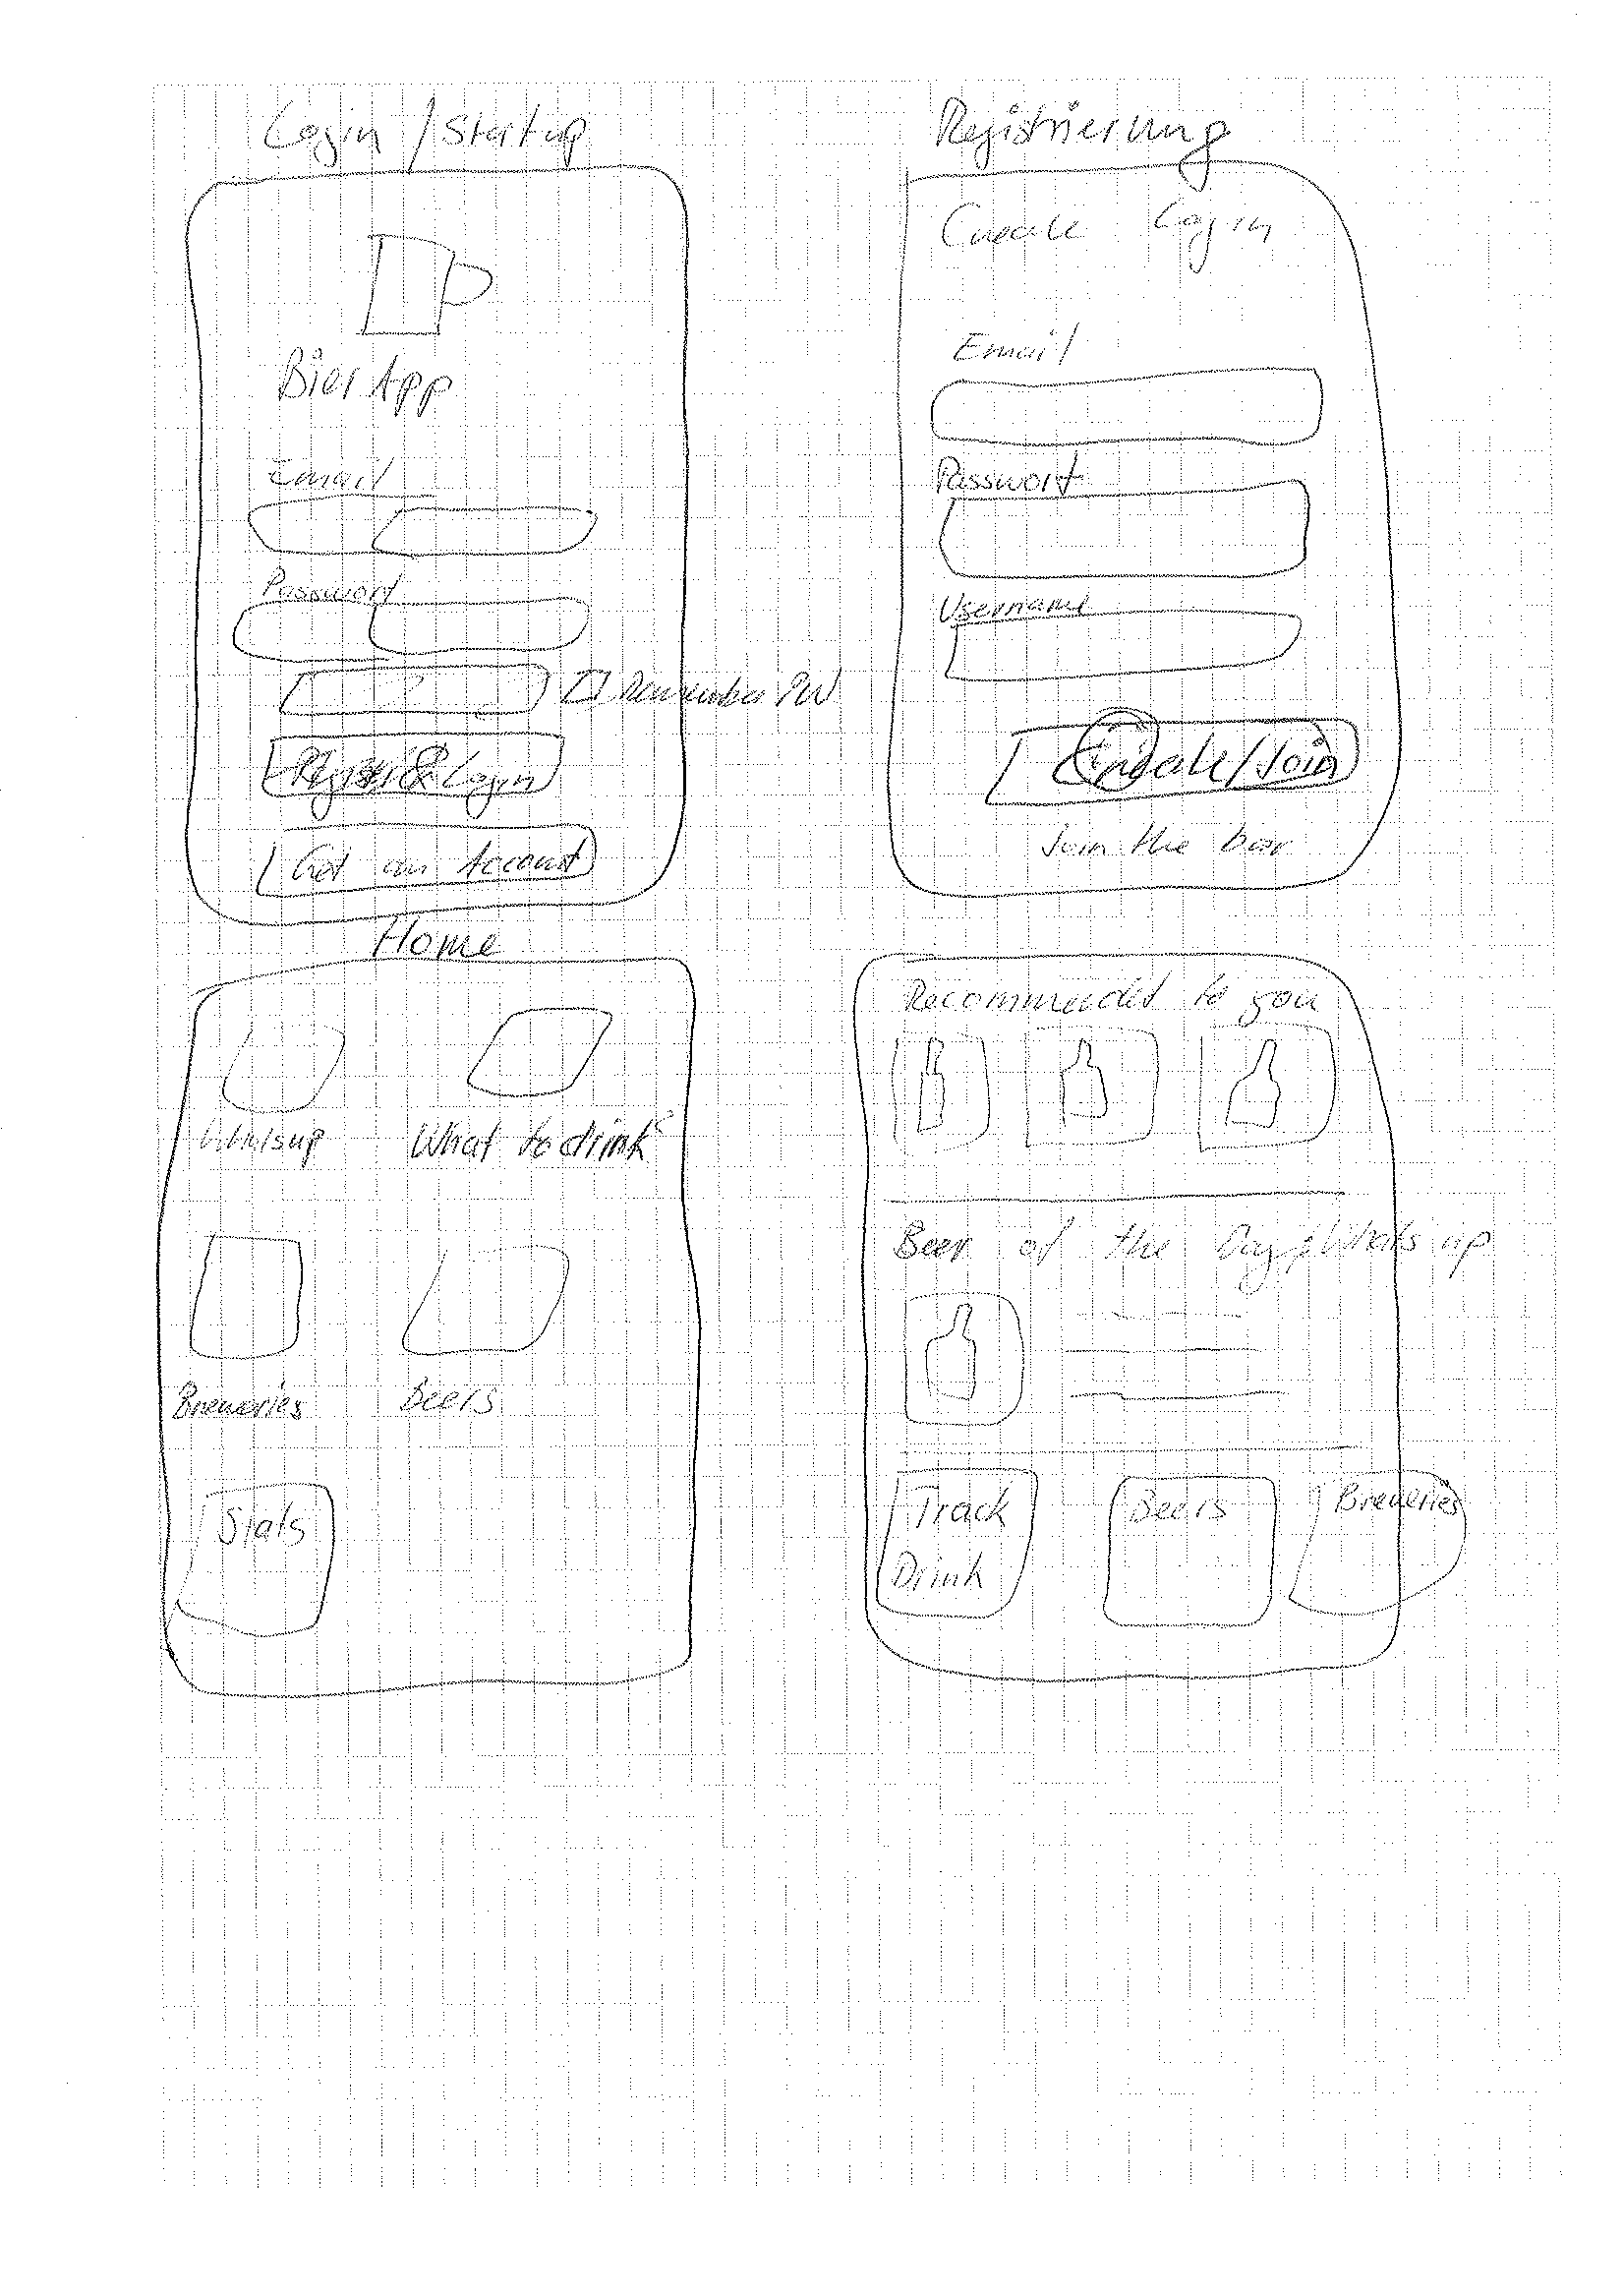 Login / Startup
Bier App
Email
Passwort
Remember PW
Login
Get an Account
Registrierung
Create Login
Email
Passwort
Username
Create/Join
Join the bar
Home
What to drink
Breweries
Beers
Stats
Recommendet to you
Beer of the Day / Whats up
Track
Drink
Beers
Breweries